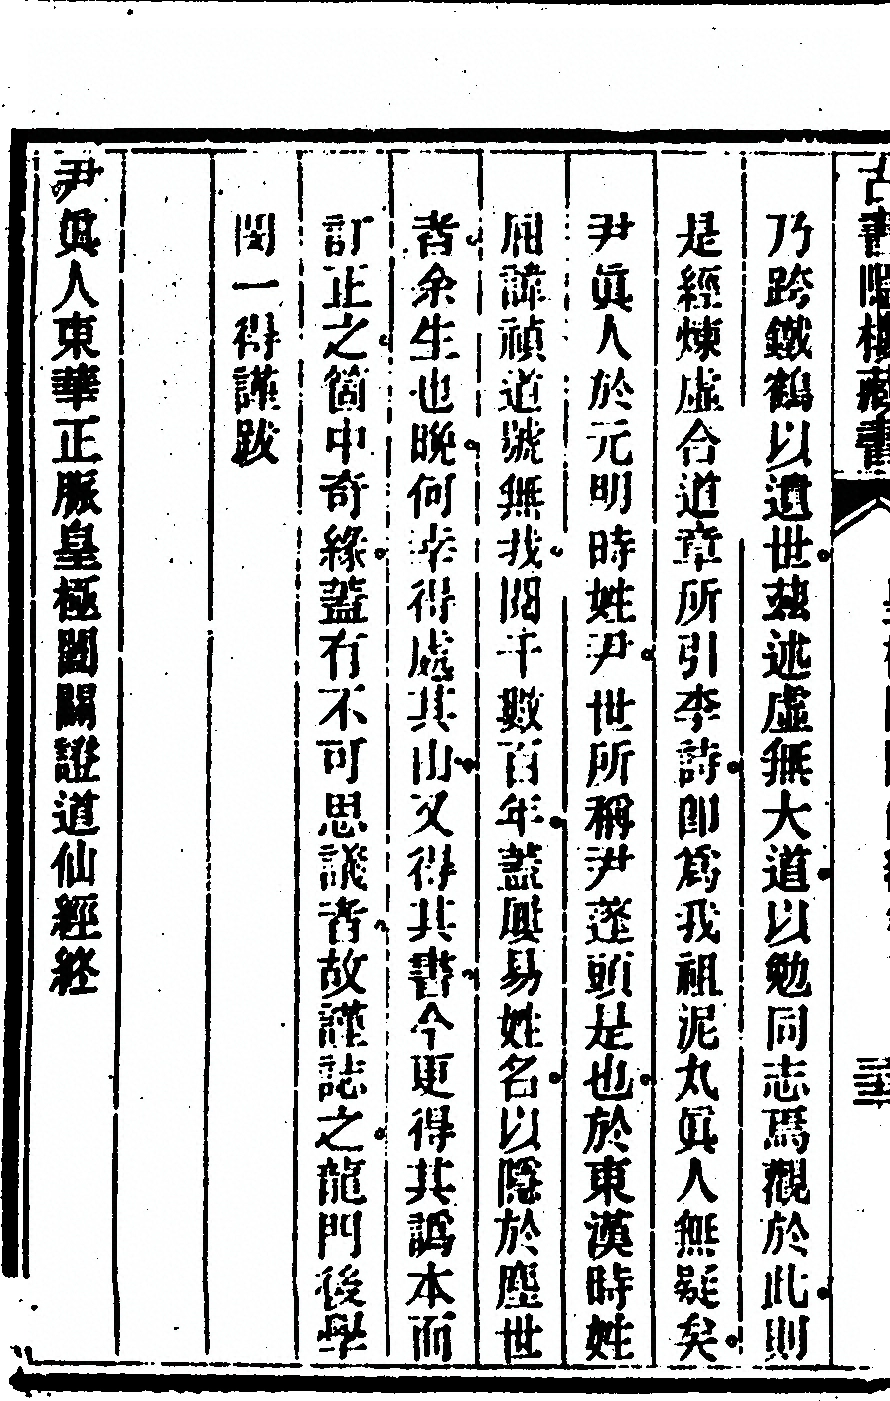 古書隱樓藏書
乃跨鐵鶴以遺世茲述虛無大道以勉同志焉觀於此則
是經煉虛合道章所引李詩卽爲我祖泥丸眞人無疑矣
尹眞人於元明時姓尹世所稱尹蓬頭是也於東漢時姓
屈諱禎道號無我閱千數百年葢屢易姓名以隱於塵世
者余生也晚何幸得處其山又得其書今更得其譌本而
訂正之箇中奇緣蓋有不可思議者故謹誌之龍門後學
閔一得謹跋
尹眞人東華正脈皇極闔闢證道仙經終